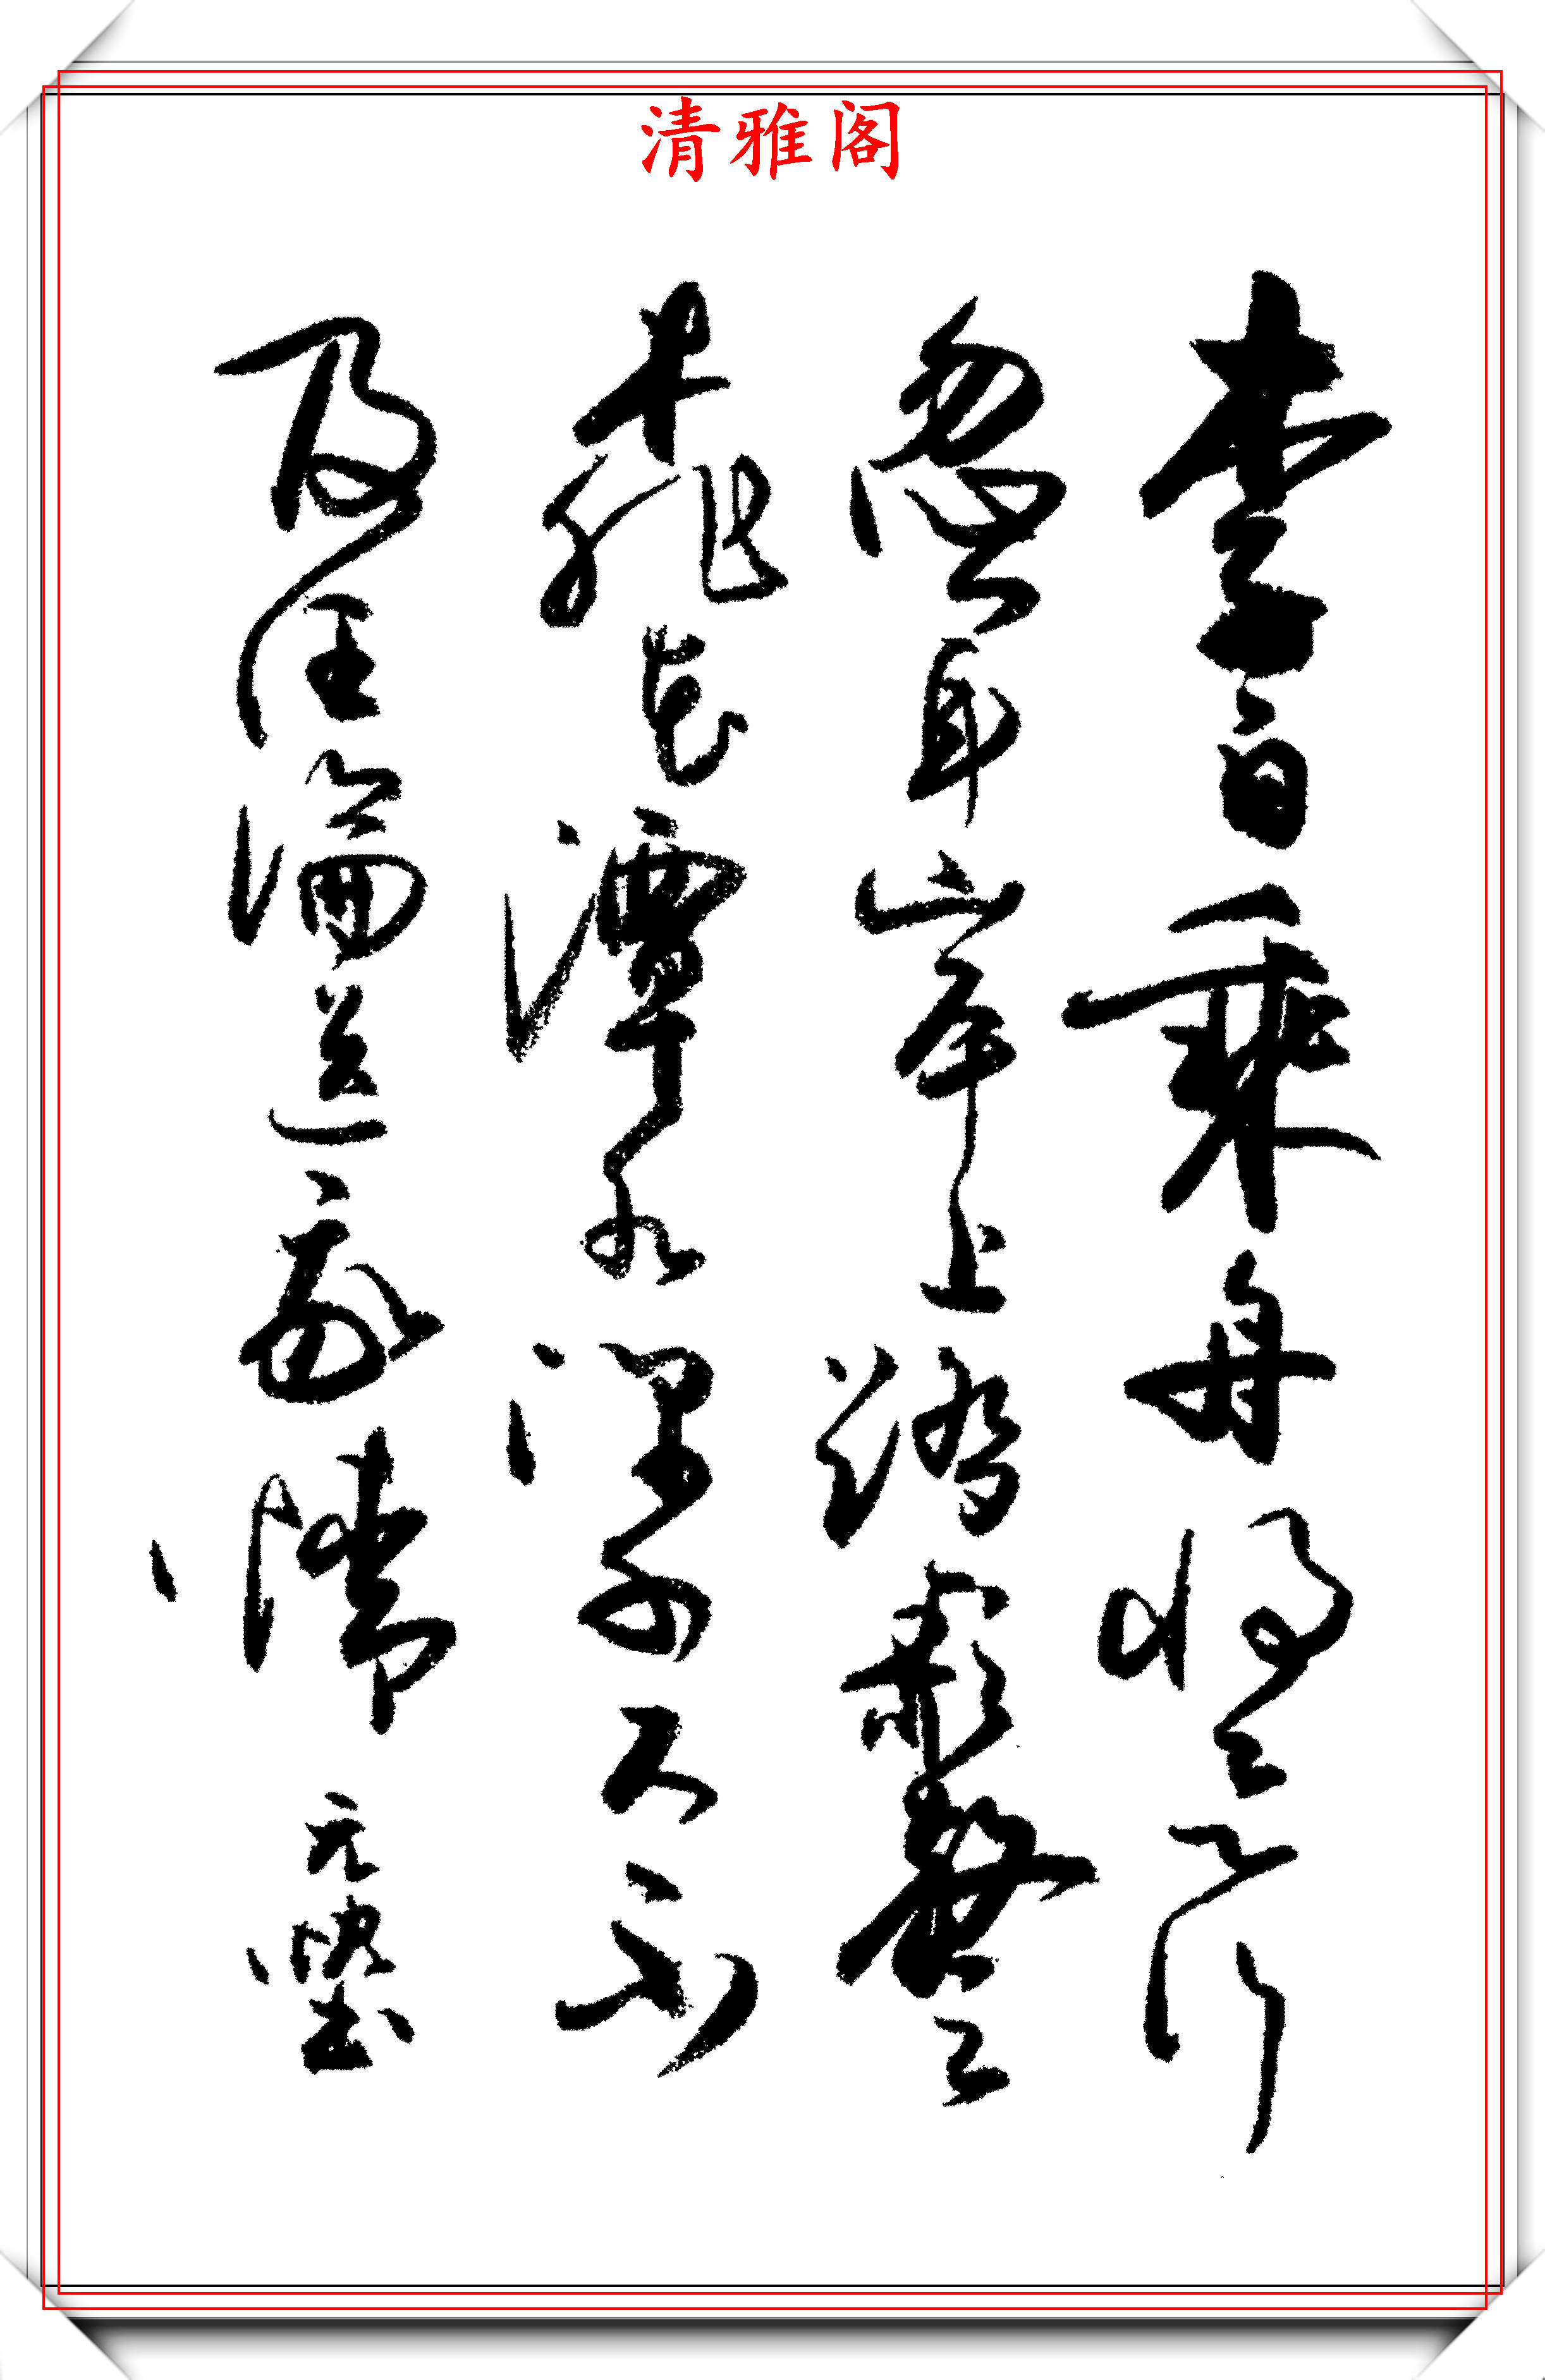 清雅阁
李白乘舟將欲行
忽聞岸上踏歌聲
桃花潭水深千尺不
及汪倫送我情 元